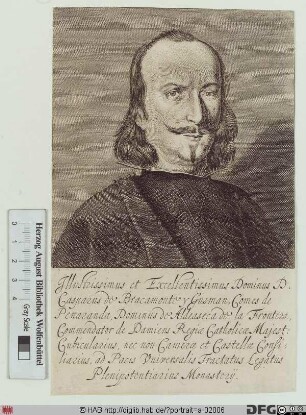 Illustrissimus et Excellentissimus Dominus D.
Casparus de Bracamonte y Gusman, Comes de
Penaranda, Dominus de Aldeaseca de la Frontera,
Commendator de Damiens Regiæ Catholicæ Majest:
Cubicularius, nec non Cameræ et Castellæ Consi-
liarius, ad Pacis Universalis Tractatus Legatus
Plenipotentiarius Monastery.
Herzog August Bibliothek Wolfenbüttel
Gray Scale
© HAB http://diglib.hab.de/?portrait=a-02006
DFG